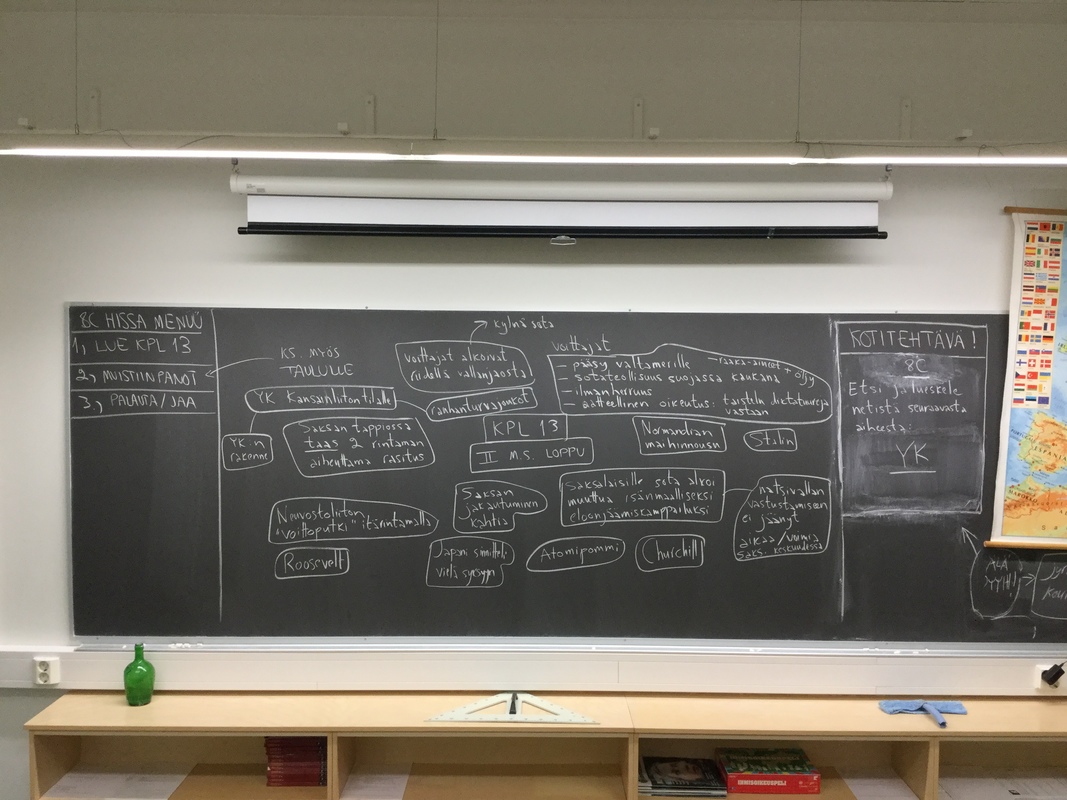 8C HISSA MENUÜ
1, LUE KPL 13
2, MUISTIINPANOT
3, PALAUTA / JAA
KS. MYÖS
TAULULLE
kylmä sota
voittajat alkoivat
riidellä vallanjaosta
voittajat
- pääsy valtamerille - raaka-aineet + öljy
- sotateollisuus suojassa kaukana
- ilmanherruus
- aatteellinen oikeutus: taistelu diktatuureja
vastaan
YK Kansainliiton tilalle
rauhanturvajoukot
YK:n
rakenne
Saksan tappiossa
taas 2 rintaman
aiheuttama rasitus
KPL 13
II M.S. LOPPU
Normandian
maihinnousu
Stalin
Neuvostoliiton
"voittoputki" itärintamalla
Saksan
jakautuminen
kahtia
Saksalaisille sota alkoi
muuttua isänmaalliseksi
eloonjäämiskamppailuksi
natsivallan
vastustamiseen
ei jäänyt
aikaa / voimia
saks. keskuudessa
Roosevelt
Japani sinnitteli
vielä syksyyn
Atomipommi
Churchill
KOTITEHTÄVÄ!
8C
Etsi ja tuiskele
netistä seuraavasta
aiheesta:
YK
ÄLÄ
PYYHI!